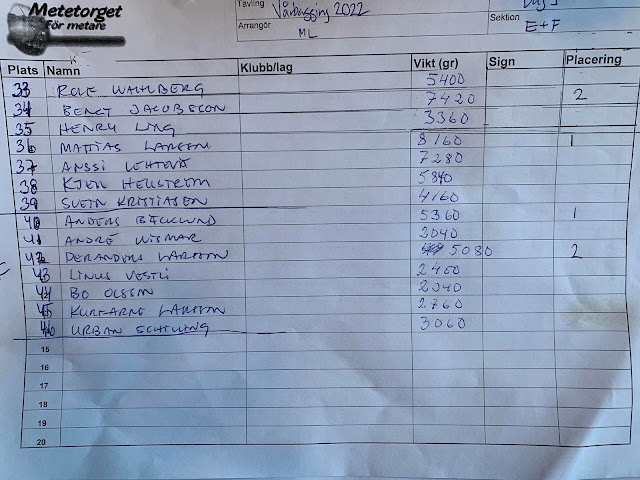 Metetorget
För metare
Tävling Vårdagging 2022
Arrangör ML
Sektion E+F
Plats Namn Klubb/lag Vikt (gr) Sign Placering
33 ROLF WAHLBERG 5400
34 BENGT JACOBSSON 7420 2
35 HENRY LING 3360
36 MATTIAS LARSSON 8160 1
37 ANSSI LEHTEVÄ 7280
38 KJELL HELLSTRÖM 5840
39 SVEIN KRISTIASEN 4160
40 ANDERS BÄCKLUND 5360 1
41 ANDRÉ WISMAR 2040
42 LARSSON 5080 2
43 LINUS VESTLI 2460
44 BO OLSSON 2040
45 KURTARNE LARSSON 2760
46 URBAN SCHILLING 3060
15
16
17
18
19
20